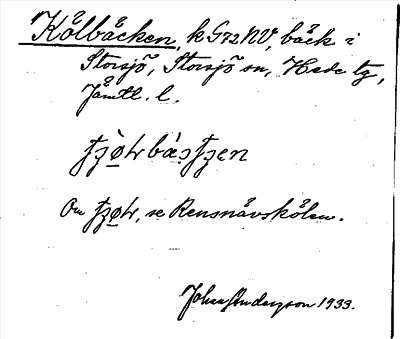 Kölbäcken, k G72 NV, bäck i
Storsjö, Storsjö sn, Hede tg,
Jämtl. l.
Om, se Rensnåvskölen.
Johan Anderzon 1933.